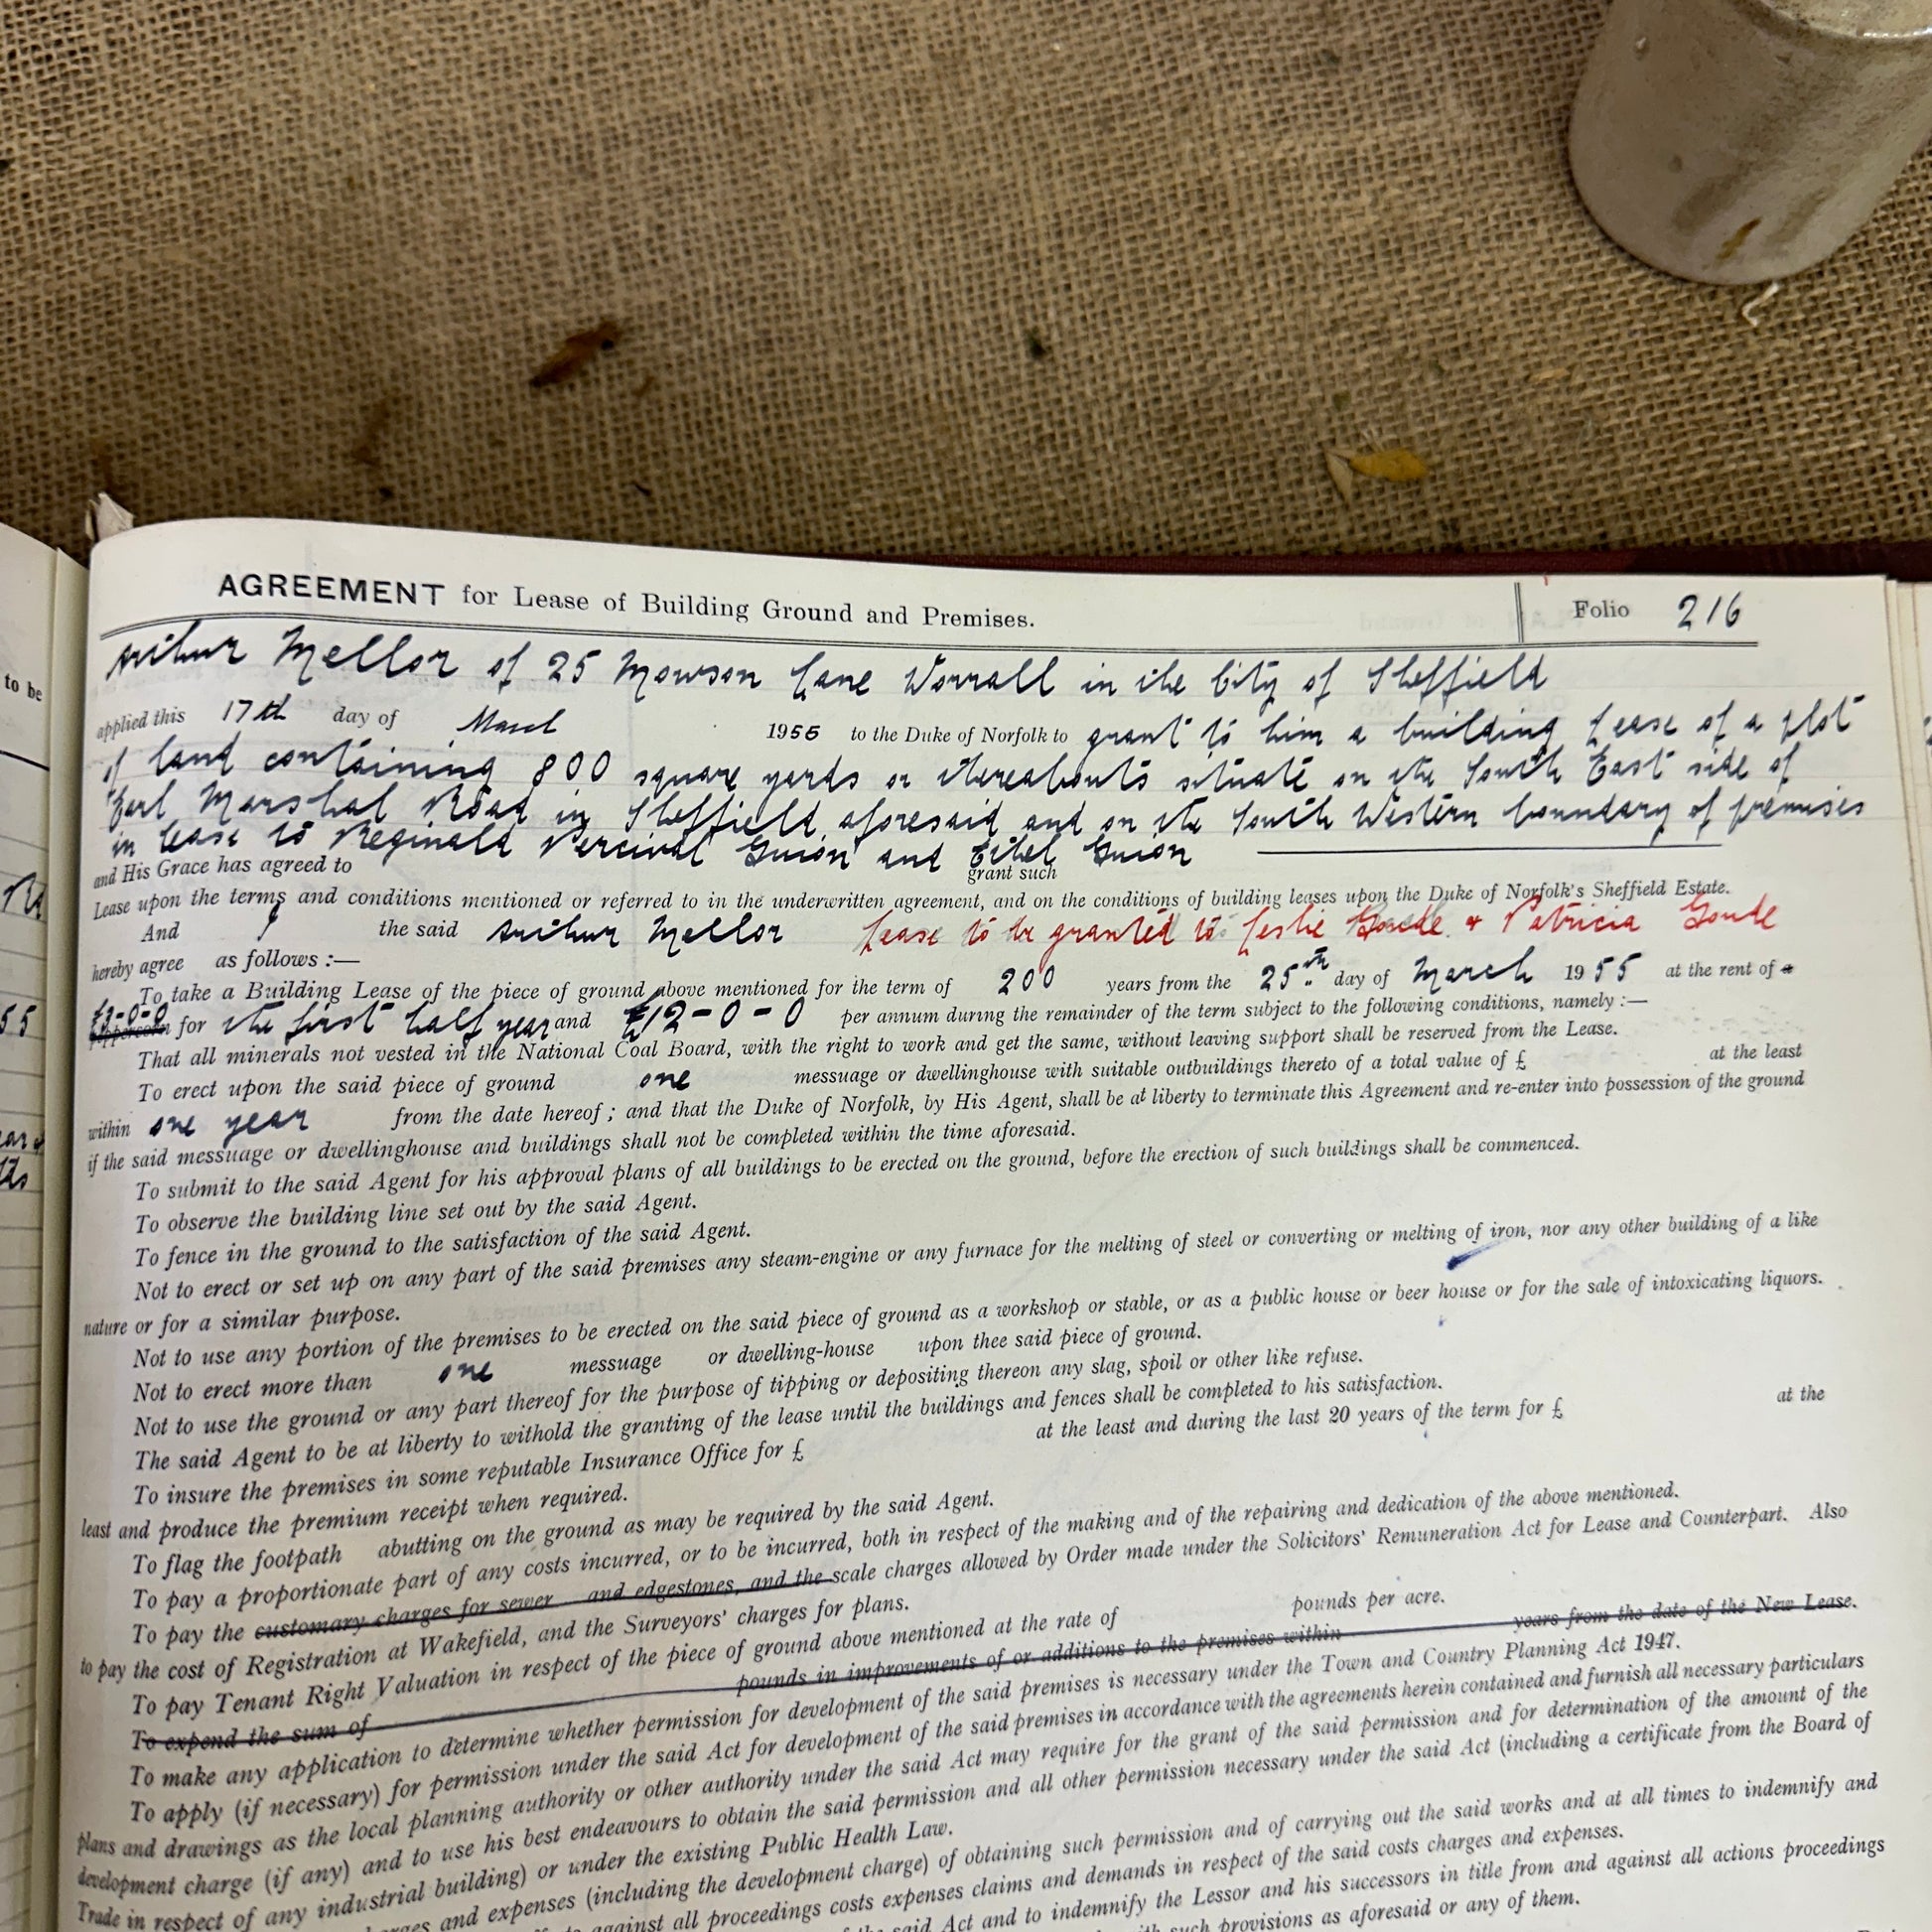 AGREEMENT for Lease of Building Ground and Premises. Folio 216
Arthur Mellor of 25 Mowson Lane Worrall in the City of Sheffield
applied this 17th day of March 1955 to the Duke of Norfolk to grant to him a building lease of a plot
of land containing 800 square yards or thereabouts situate on the South East side of
Earl Marshal Road in Sheffield aforesaid and on the South Western boundary of premises
in lease to Reginald Percival Guion and Ethel Guion
and His Grace has agreed to grant such
Lease upon the terms and conditions mentioned or referred to in the underwritten agreement, and on the conditions of building leases upon the Duke of Norfolk's Sheffield Estate.
And I the said Arthur Mellor Lease to be granted to Leslie Goude & Patricia Goude
hereby agree as follows :—
To take a Building Lease of the piece of ground above mentioned for the term of 200 years from the 25th day of March 1955 at the rent of a
£3-0-0 peppercorn for the first half year and £12-0-0 per annum during the remainder of the term subject to the following conditions, namely :—
That all minerals not vested in the National Coal Board, with the right to work and get the same, without leaving support shall be reserved from the Lease.
To erect upon the said piece of ground one messuage or dwellinghouse with suitable outbuildings thereto of a total value of £ at the least
within one year from the date hereof ; and that the Duke of Norfolk, by His Agent, shall be at liberty to terminate this Agreement and re-enter into possession of the ground
if the said messuage or dwellinghouse and buildings shall not be completed within the time aforesaid.
To submit to the said Agent for his approval plans of all buildings to be erected on the ground, before the erection of such buildings shall be commenced.
To observe the building line set out by the said Agent.
To fence in the ground to the satisfaction of the said Agent.
Not to erect or set up on any part of the said premises any steam-engine or any furnace for the melting of steel or converting or melting of iron, nor any other building of a like
nature or for a similar purpose.
Not to use any portion of the premises to be erected on the said piece of ground as a workshop or stable, or as a public house or beer house or for the sale of intoxicating liquors.
Not to erect more than one messuage or dwelling-house upon thee said piece of ground.
Not to use the ground or any part thereof for the purpose of tipping or depositing thereon any slag, spoil or other like refuse.
The said Agent to be at liberty to withold the granting of the lease until the buildings and fences shall be completed to his satisfaction.
To insure the premises in some reputable Insurance Office for £ at the least and during the last 20 years of the term for £ at the
least and produce the premium receipt when required.
To flag the footpath abutting on the ground as may be required by the said Agent.
To pay a proportionate part of any costs incurred, or to be incurred, both in respect of the making and of the repairing and dedication of the above mentioned.
To pay the customary charges for sewer and edgestones, and the scale charges allowed by Order made under the Solicitors' Remuneration Act for Lease and Counterpart. Also
to pay the cost of Registration at Wakefield, and the Surveyors' charges for plans.
To pay Tenant Right Valuation in respect of the piece of ground above mentioned at the rate of pounds per acre.
To expend the sum of pounds in improvements of or additions to the premises within years from the date of the New Lease.
To make any application to determine whether permission for development of the said premises is necessary under the Town and Country Planning Act 1947.
To apply (if necessary) for permission under the said Act for development of the said premises in accordance with the agreements herein contained and furnish all necessary particulars
plans and drawings as the local planning authority or other authority under the said Act may require for the grant of the said permission and for determination of the amount of the
development charge (if any) and to use his best endeavours to obtain the said permission and all other permission necessary under the said Act (including a certificate from the Board of
Trade in respect of any industrial building) or under the existing Public Health Law.
and expenses (including the development charge) of obtaining such permission and of carrying out the said works and at all times to indemnify and
against all proceedings costs expenses claims and demands in respect of the said costs charges and expenses.
the said Act and to indemnify the Lessor and his successors in title from and against all actions proceedings
such provisions as aforesaid or any of them.
to be
55